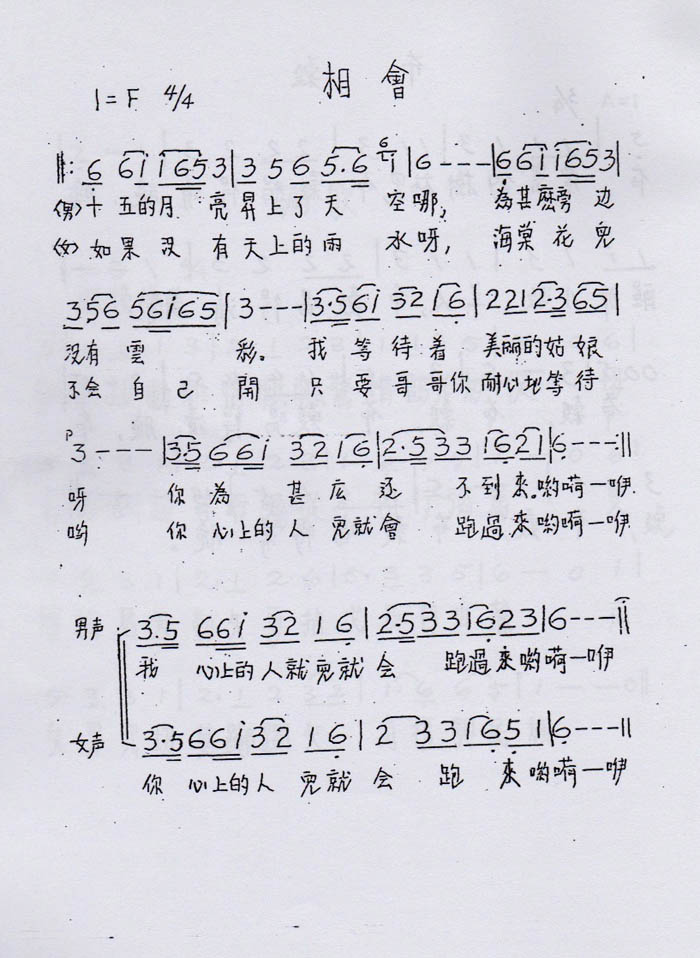 相 會
1=F 4/4
‖: 6 6i 1653 | 3 5 6 5·6 i | 6 - - - | 66i 1653 |
(男)十 五的月 亮昇上了天 空哪, 為甚麽旁边
(女)如果没 有天上的雨 水呀, 海棠花兒
356 56i65 | 3 - - - | 3·56i 32 16 | 2212·365 |
没有雲 彩。我等待着 美丽的姑娘
不会自己 開 只要哥哥你耐心地等待
3 - - - | 3·5 66i 32 16 | 2·533 1621 | 6 - - - ‖
呀 你為 甚広还 不到來.喲嗬一咿.
喲 你心上的人兒就會 跑過來喲嗬一咿
男声 3·5 66i 32 1 6 | 2·533 1623 | 6 - - - ‖
我 心上的人就兒就会 跑過來喲嗬一咿
女声 3·5 66i 32 16 | 2 33 1651 | 6 - - - ‖
你 心上的人 兒就会 跑 來喲嗬一咿